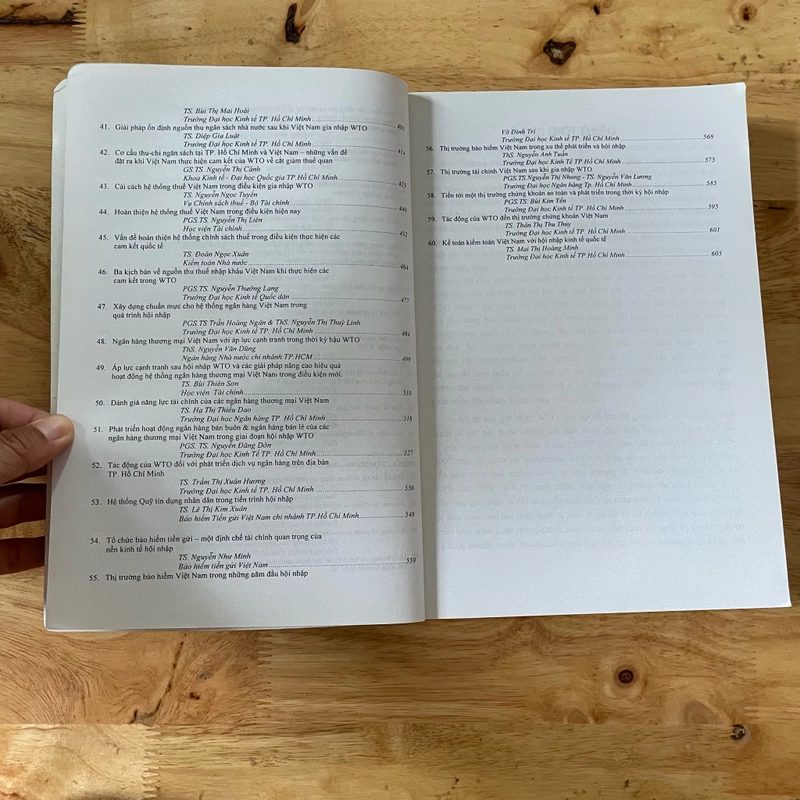 TS. Bùi Thị Mai Hoài
Trường Đại học Kinh tế TP. Hồ Chí Minh
41. Giải pháp ổn định nguồn thu ngân sách nhà nước sau khi Việt Nam gia nhập WTO
TS. Diệp Gia Luật
Trường Đại học Kinh tế TP. Hồ Chí Minh
42. Cơ cấu thu-chi ngân sách tại TP. Hồ Chí Minh và Việt Nam – những vấn đề
đặt ra khi Việt Nam thực hiện cam kết của WTO về cắt giảm thuế quan
GS.TS. Nguyễn Thị Cành
Khoa Kinh tế - Đại học Quốc gia TP. Hồ Chí Minh
43. Cải cách hệ thống thuế Việt Nam trong điều kiện gia nhập WTO
TS. Nguyễn Ngọc Tuyến
Vụ Chính sách thuế - Bộ Tài chính
44. Hoàn thiện hệ thống thuế Việt Nam trong điều kiện hiện nay
PGS.TS. Nguyễn Thị Liên
Học viện Tài chính 452
45. Vấn đề hoàn thiện hệ thống chính sách thuế trong điều kiện thực hiện các
cam kết quốc tế
TS. Đoàn Ngọc Xuân
Kiểm toán Nhà nước 464
46. Ba kịch bản về nguồn thu thuế nhập khẩu Việt Nam khi thực hiện các
cam kết trong WTO
PGS.TS. Nguyễn Thường Lạng
Trường Đại học Kinh tế Quốc dân 477
47. Xây dựng chuẩn mực cho hệ thống ngân hàng Việt Nam trong
quá trình hội nhập
PGS.TS Trần Hoàng Ngân & ThS. Nguyễn Thị Thuỳ Linh
Trường Đại học Kinh tế TP. Hồ Chí Minh 484
48. Ngân hàng thương mại Việt Nam với áp lực cạnh tranh trong thời kỳ hậu WTO
ThS. Nguyễn Văn Dũng
Ngân hàng Nhà nước chi nhánh TP.HCM 499
49. Áp lực cạnh tranh sau hội nhập WTO và các giải pháp nâng cao hiệu quả
hoạt động hệ thống ngân hàng thương mại Việt Nam trong điều kiện mới.
TS. Bùi Thiên Sơn
Học viện Tài chính 510
50. Đánh giá năng lực tài chính của các ngân hàng thương mại Việt Nam
TS. Hạ Thị Thiều Dao
Trường Đại học Ngân hàng TP. Hồ Chí Minh 518
51. Phát triển hoạt động ngân hàng bán buôn & ngân hàng bán lẻ của các
ngân hàng thương mại Việt Nam trong giai đoạn hội nhập WTO
PGS. TS. Nguyễn Đăng Dờn
Trường Đại học Kinh Tế TP. Hồ Chí Minh 527
52. Tác động của WTO đối với phát triển dịch vụ ngân hàng trên địa bàn
TP. Hồ Chí Minh
TS. Trầm Thị Xuân Hương
Trường Đại học Kinh tế TP. Hồ Chí Minh 536
53. Hệ thống Quỹ tín dụng nhân dân trong tiến trình hội nhập
TS. Lê Thị Kim Xuân
Bảo hiểm Tiền gửi Việt Nam chi nhánh TP.Hồ Chí Minh 548
54. Tổ chức bảo hiểm tiền gửi – một định chế tài chính quan trọng của
nền kinh tế hội nhập
TS. Nguyễn Như Minh
Bảo hiểm tiền gửi Việt Nam 559
55. Thị trường bảo hiểm Việt Nam trong những năm đầu hội nhập
Võ Đình Trí
Trường Đại học Kinh tế TP. Hồ Chí Minh 568
56. Thị trường bảo hiểm Việt Nam trong xu thế phát triển và hội nhập
ThS. Nguyễn Anh Tuấn
Trường Đại học Kinh Tế TP. Hồ Chí Minh 575
57. Thị trường tài chính Việt Nam sau khi gia nhập WTO
PGS.TS.Nguyễn Thị Nhung - TS. Nguyễn Văn Lương
Trường Đại học Ngân hàng Tp. Hồ Chí Minh 583
58. Tiến tới một thị trường chứng khoán an toàn và phát triển trong thời kỳ hội nhập
PGS.TS. Bùi Kim Yến
Trường Đại học Kinh tế TP. Hồ Chí Minh 595
59. Tác động của WTO đến thị trường chứng khoán Việt Nam
TS. Thân Thị Thu Thủy
Trường Đại học Kinh tế TP. Hồ Chí Minh 601
60. Kế toán kiểm toán Việt Nam với hội nhập kinh tế quốc tế
TS. Mai Thị Hoàng Minh
Trường Đại học Kinh tế TP. Hồ Chí Minh 603